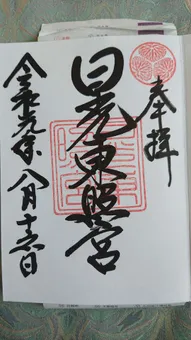 奉拝
日光東照宮
令和元年八月十六日